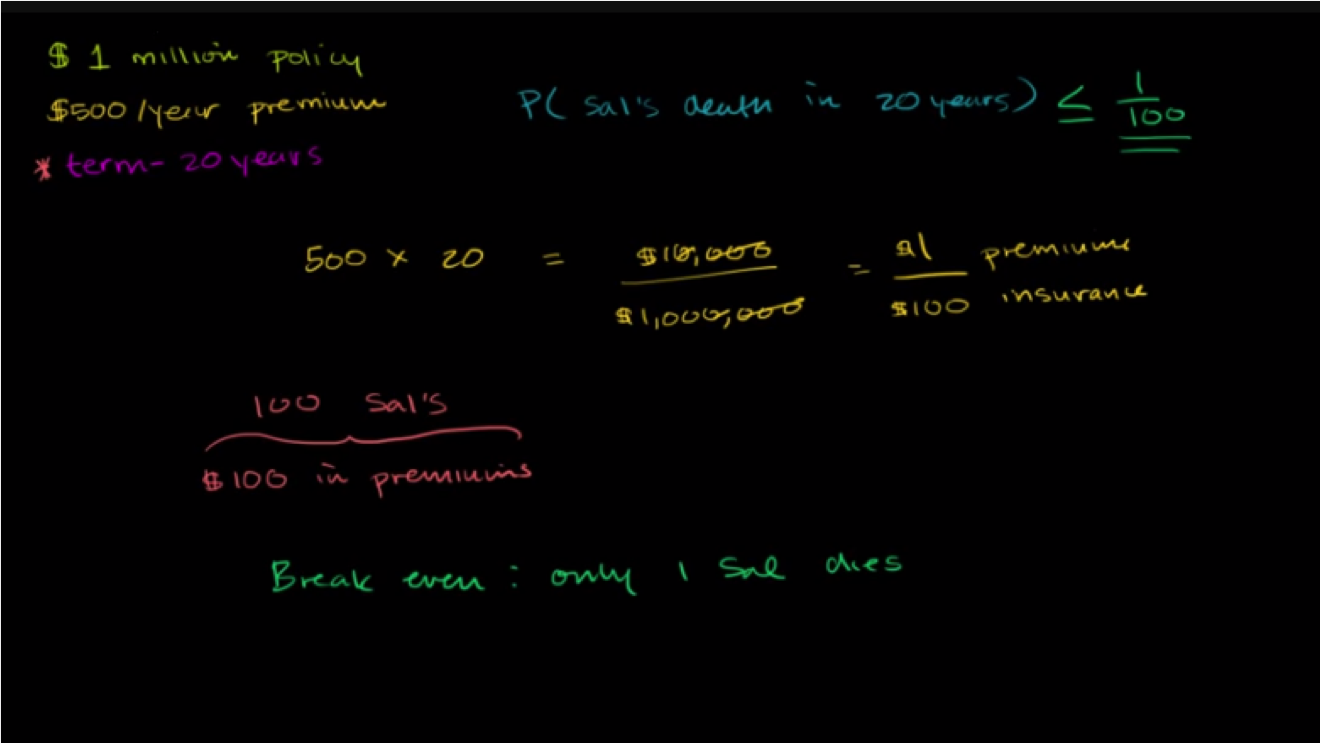 $ 1 million policy
$500/year premium
* term- 20 years
P( Sal's death in 20 years) ≤ 1/100
500 × 20 = $10,000/$1,000,000 = $1 premiums/$100 insurance
100 Sal's
$100 in premiums
Break even : only 1 Sal dies